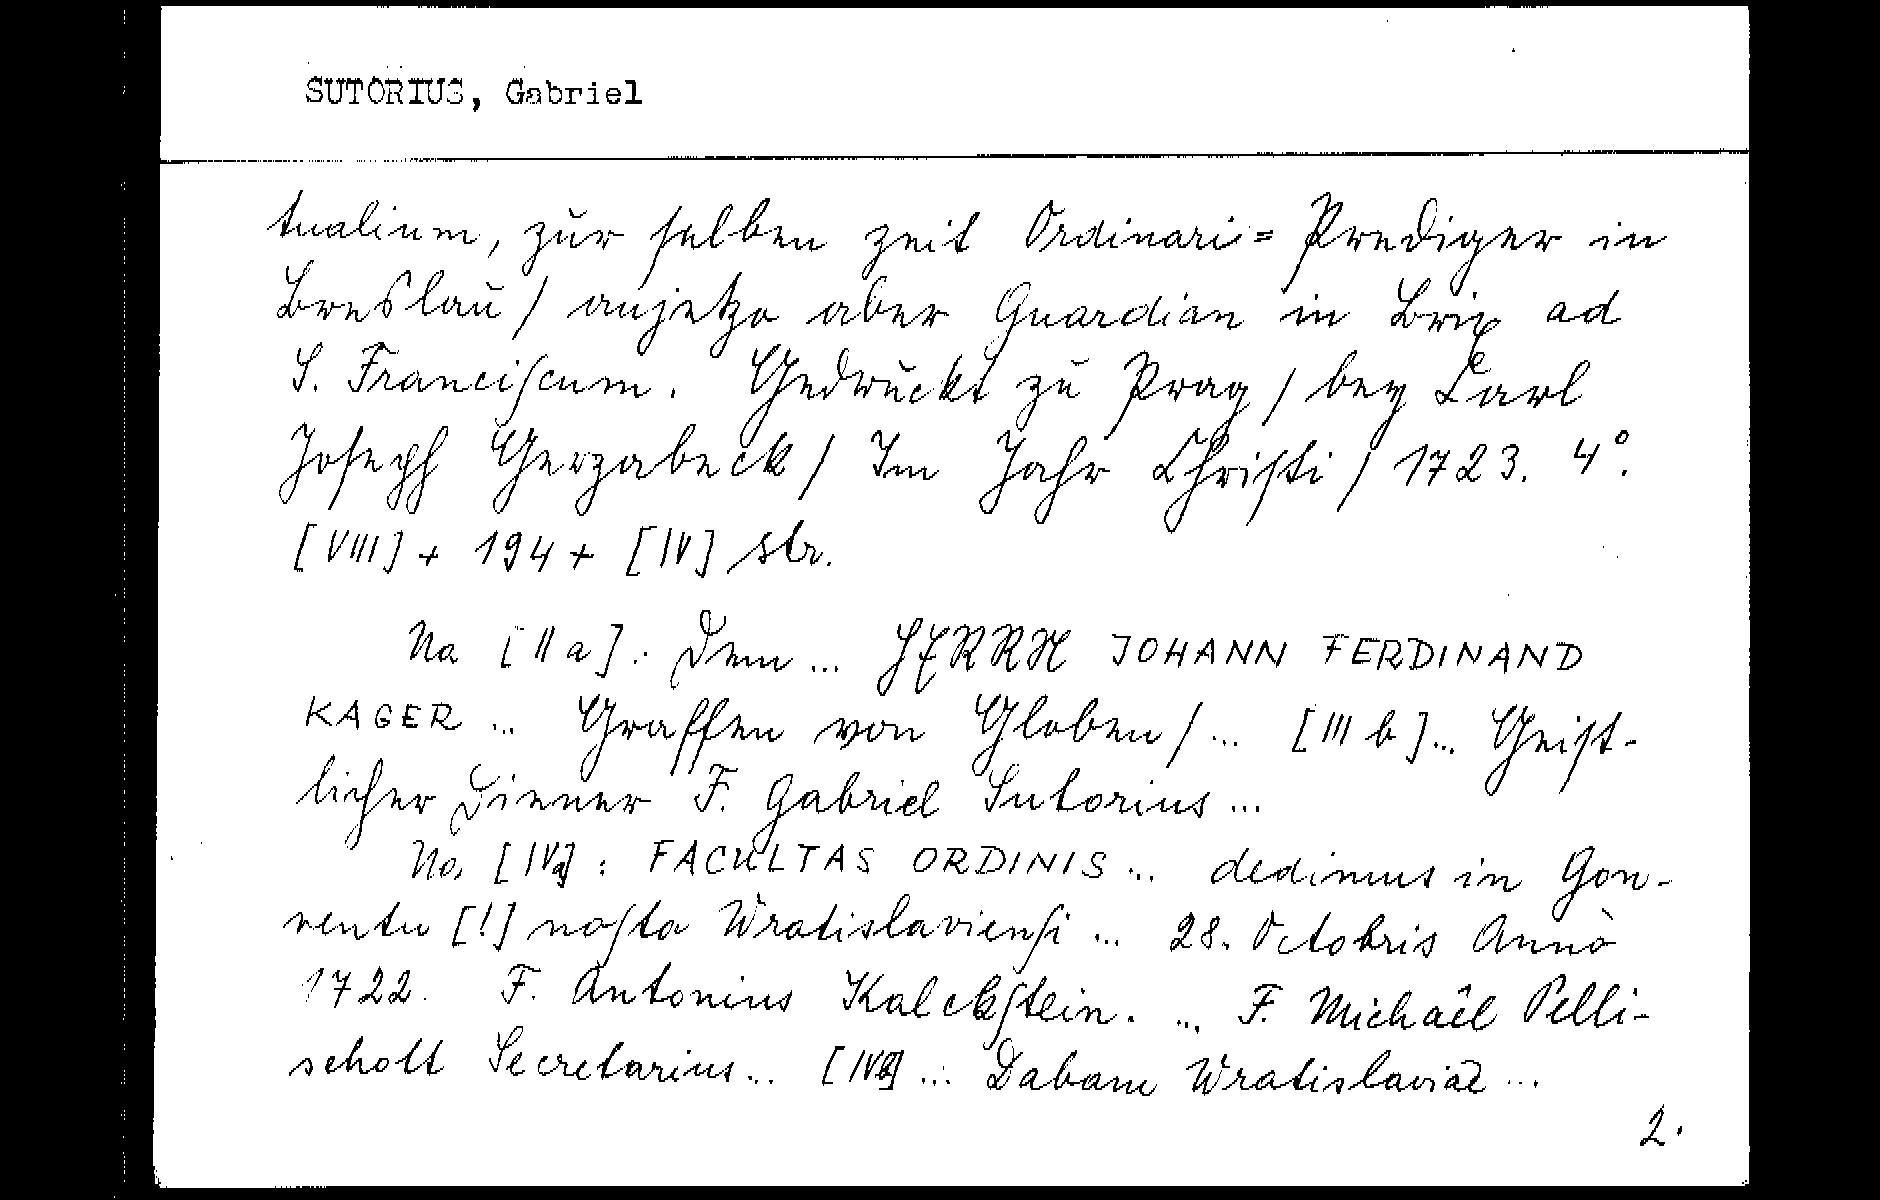 SUTORIUS, Gabriel
tualium, zur selben zeit Ordinari= Prediger in
Breßlau / anjetzo aber Guardian in Brix ad
S. Franciſcum. Gedruckt zu Prag / bey Carl
Joseph Gerzabeck / Im Jahr Chriſti / 1723. 4°.
[VIII] + 194 + [IV] str.
Na [II a]: Dem ... HERRN JOHANN FERDINAND
KAGER ... Graffen von Globen / ... [III b] ... Geiſt-
licher Diener F. Gabriel Sutorius ...
Na [IVa] : FACULTAS ORDINIS ... dedimus in Gon-
ventu [!] noſto Wratislavienſi ... 28. Octobris Annò
1722. F. Antonius Kalckſtein. ... F. Michaël Pelli-
scholt Secretarius ... [IVb] ... Dabam Wratislaviae ...
2.